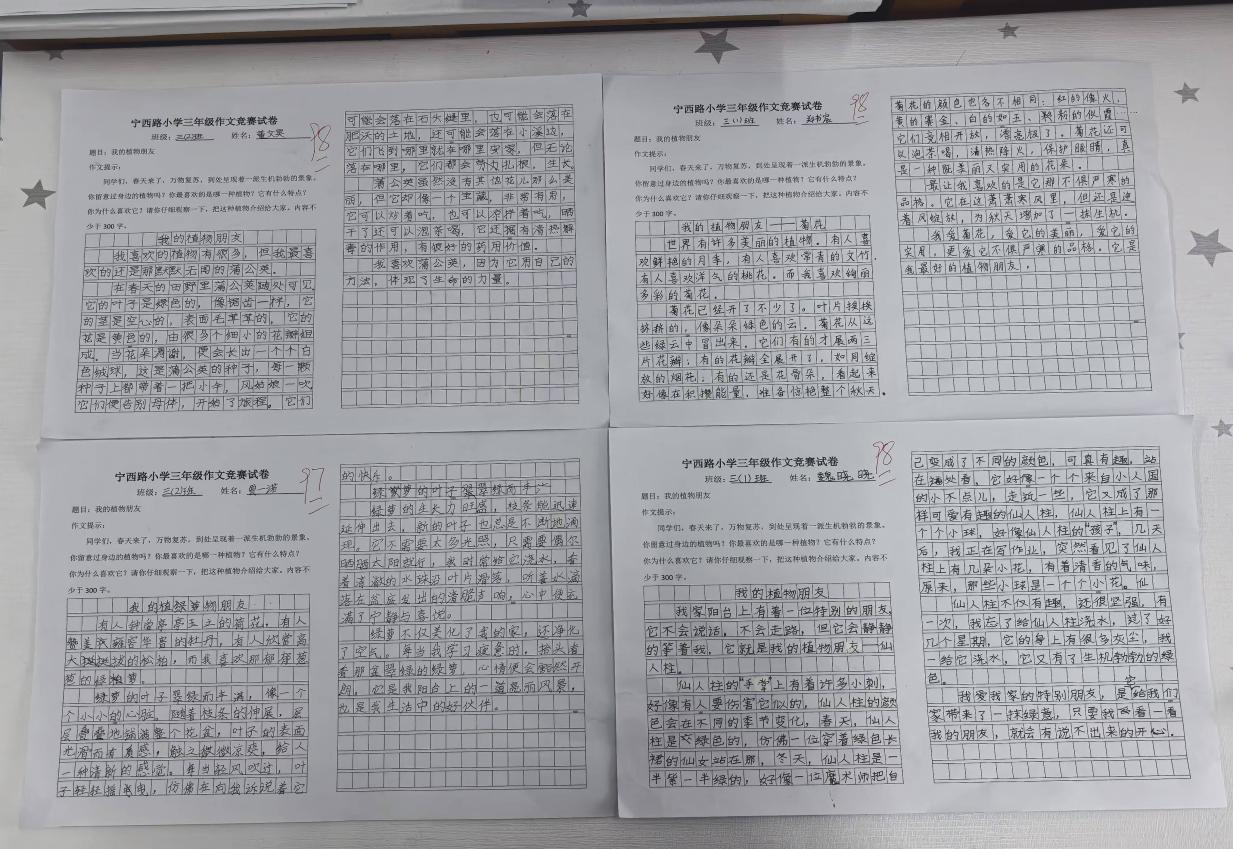 宁西路小学三年级作文竞赛试卷
98
班级：三(2)班 姓名：董文昊
题目：我的植物朋友
作文提示：
同学们，春天来了，万物复苏，到处呈现着一派生机勃勃的景象。
你留意过身边的植物吗？你最喜欢的是哪一种植物？它有什么特点？
你为什么喜欢它？请你仔细观察一下，把这种植物介绍给大家。内容不
少于 300 字。
我的植物朋友
我喜欢的植物有很多，但我最喜
欢的还是那默默无闻的蒲公英。
在春天的田野里蒲公英随处可见，
它的叶子是绿色的，像锯齿一样，它
的茎是空心的，表面毛茸茸的，它的
花是黄色的，由很多个细小的花瓣组
成。当花朵凋谢，便会长出一个个白
色绒球，这是蒲公英的种子，每一颗
种子上都带着一把小伞，风姑娘一吹
它们便告别母体，开始了旅程。它们
可能会落在石头缝里，也可能会落在
肥沃的土地，还可能会落在小溪边，
它们飞到哪里就在哪里安家，但无论
落在哪里，它们都会努力扎根，生长
蒲公英虽然没有其他花儿那么美
丽，但它却像一个宝藏，非常有用，
它可以炒着吃，也可以凉拌着吃，晒
干了还可以泡茶喝，它还拥有清热解
毒的作用，有很好的药用价值。
我喜欢蒲公英，因为它用自己的
力法，体现了生命的力量。
宁西路小学三年级作文竞赛试卷
98
班级：三(1)班 姓名：书宸
题目：我的植物朋友
作文提示：
同学们，春天来了，万物复苏，到处呈现着一派生机勃勃的景象。
你留意过身边的植物吗？你最喜欢的是哪一种植物？它有什么特点？
你为什么喜欢它？请你仔细观察一下，把这种植物介绍给大家。内容不
少于 300 字。
我的植物朋友——菊花
世界有许多美丽的植物。有人喜
欢鲜艳的月季，有人喜欢常青的文竹，
有人喜欢洋气的桃花。而我喜欢绚丽
多彩的菊花。
菊花已经开了不少了。叶片挨挨
挤挤的，像朵朵绿色的云。菊花从这
些绿云中冒出来。它们有的才展两三
片花瓣；有的花瓣全展开了，如同绽
放的烟花；有的还是花骨朵，看起来
好像在积攒能量，准备惊艳整个秋天。
菊花的颜色也各不相同：红的像火，
黄的赛金、白的如玉、粉的似霞
它们竞相开放，漂亮极了。菊花还可
以泡茶喝，清热降火，保护眼睛，真
是一种既美丽又实用的花朵。
最让我喜欢的是它那不俱严寒的
品格。它在这萧萧寒风里，但还是迎
着风绽放，为秋天增加了一抹生机。
我爱菊花，爱它的美丽，爱它的
实用，更爱它不俱严寒的品格。它是
我最好的植物朋友。
宁西路小学三年级作文竞赛试卷
97
班级：三(2)班 姓名：一诺
题目：我的植物朋友
作文提示：
同学们，春天来了，万物复苏，到处呈现着一派生机勃勃的景象。
你留意过身边的植物吗？你最喜欢的是哪一种植物？它有什么特点？
你为什么喜欢它？请你仔细观察一下，把这种植物介绍给大家。内容不
少于 300 字。
我的植绿萝物朋友
有人钟爱亭亭玉立的荷花，有人
赞美雍容华贵的牡丹，有人欣赏高
大挺拔的松柏，而我喜欢那郁郁葱
葱的绿萝。
绿萝的叶子翠绿而丰满，像一个
个小小的心脏。随着枝条的伸展，层
层叠叠地铺满整个花盆，叶子的表面
光滑而有质感，触之微微凉爽，给人
一种清新的感觉。每当轻风吹过，叶
子轻轻摇曳，仿佛在向我诉说着它
的快乐。
绿萝的叶子翠翠绿而丰
绿萝的生长力旺盛，枝条能迅速
延伸出去，新的叶子也总是不断地涌
现。它不需要太多光照，只需要偶尔
晒晒太阳就行，我时常给它浇水，看
着清澈的水珠沿叶片滑落，听着水滴
落在盆底发出的清脆声响，心中便充
满了宁静与喜悦。
绿萝不仅美化了我的家，还净化
了空气。每当我学习疲惫时，抬头看
看那盆翠绿的绿萝，心情便会豁然开
朗，它是我阳台上的一道亮丽风景，
也是我生活中的好伙伴。
宁西路小学三年级作文竞赛试卷
98
班级：三(1)班 姓名：魏晓晓
题目：我的植物朋友
作文提示：
同学们，春天来了，万物复苏，到处呈现着一派生机勃勃的景象。
你留意过身边的植物吗？你最喜欢的是哪一种植物？它有什么特点？
你为什么喜欢它？请你仔细观察一下，把这种植物介绍给大家。内容不
少于 300 字。
我的植物朋友
我家阳台上有着一位特别的朋友，
它不会说话，不会走路，但它会静静
的等着我，它就是我的植物朋友——仙
人柱。
仙人柱的“手掌”上有着许多小刺，
好像有人要伤害它似的，仙人柱的颜
色会在不同的季节变化，春天，仙人
柱是绿色的，仿佛一位穿着绿色长
裙的仙女站在那，冬天，仙人柱是一
半紫一半绿的，好像一位魔术师把自
己变成了不同的颜色，可真有趣，站
在远处看，它好像一个个来自小人国
的小不点儿，走近一些，它又成了那
样可爱有趣的仙人柱，仙人柱上有一
个个小球，好像仙人柱的“孩子”。几天
后，我正在写作业，突然看见了仙人
柱上有几朵小花，有着清香的气味，
原来，那些小球是一个个小花。仙
仙人柱不仅有趣，还很坚强，有
一次，我忘了给仙人柱浇水，过了好
几个星期，它的身上有很多灰尘，我
一给它浇水，它又有了生机勃勃的绿
色。
我爱我家的特别朋友，是它给我们
家带来了一抹绿意，只要我看一看
我的朋友，就会有说不出来的开心。